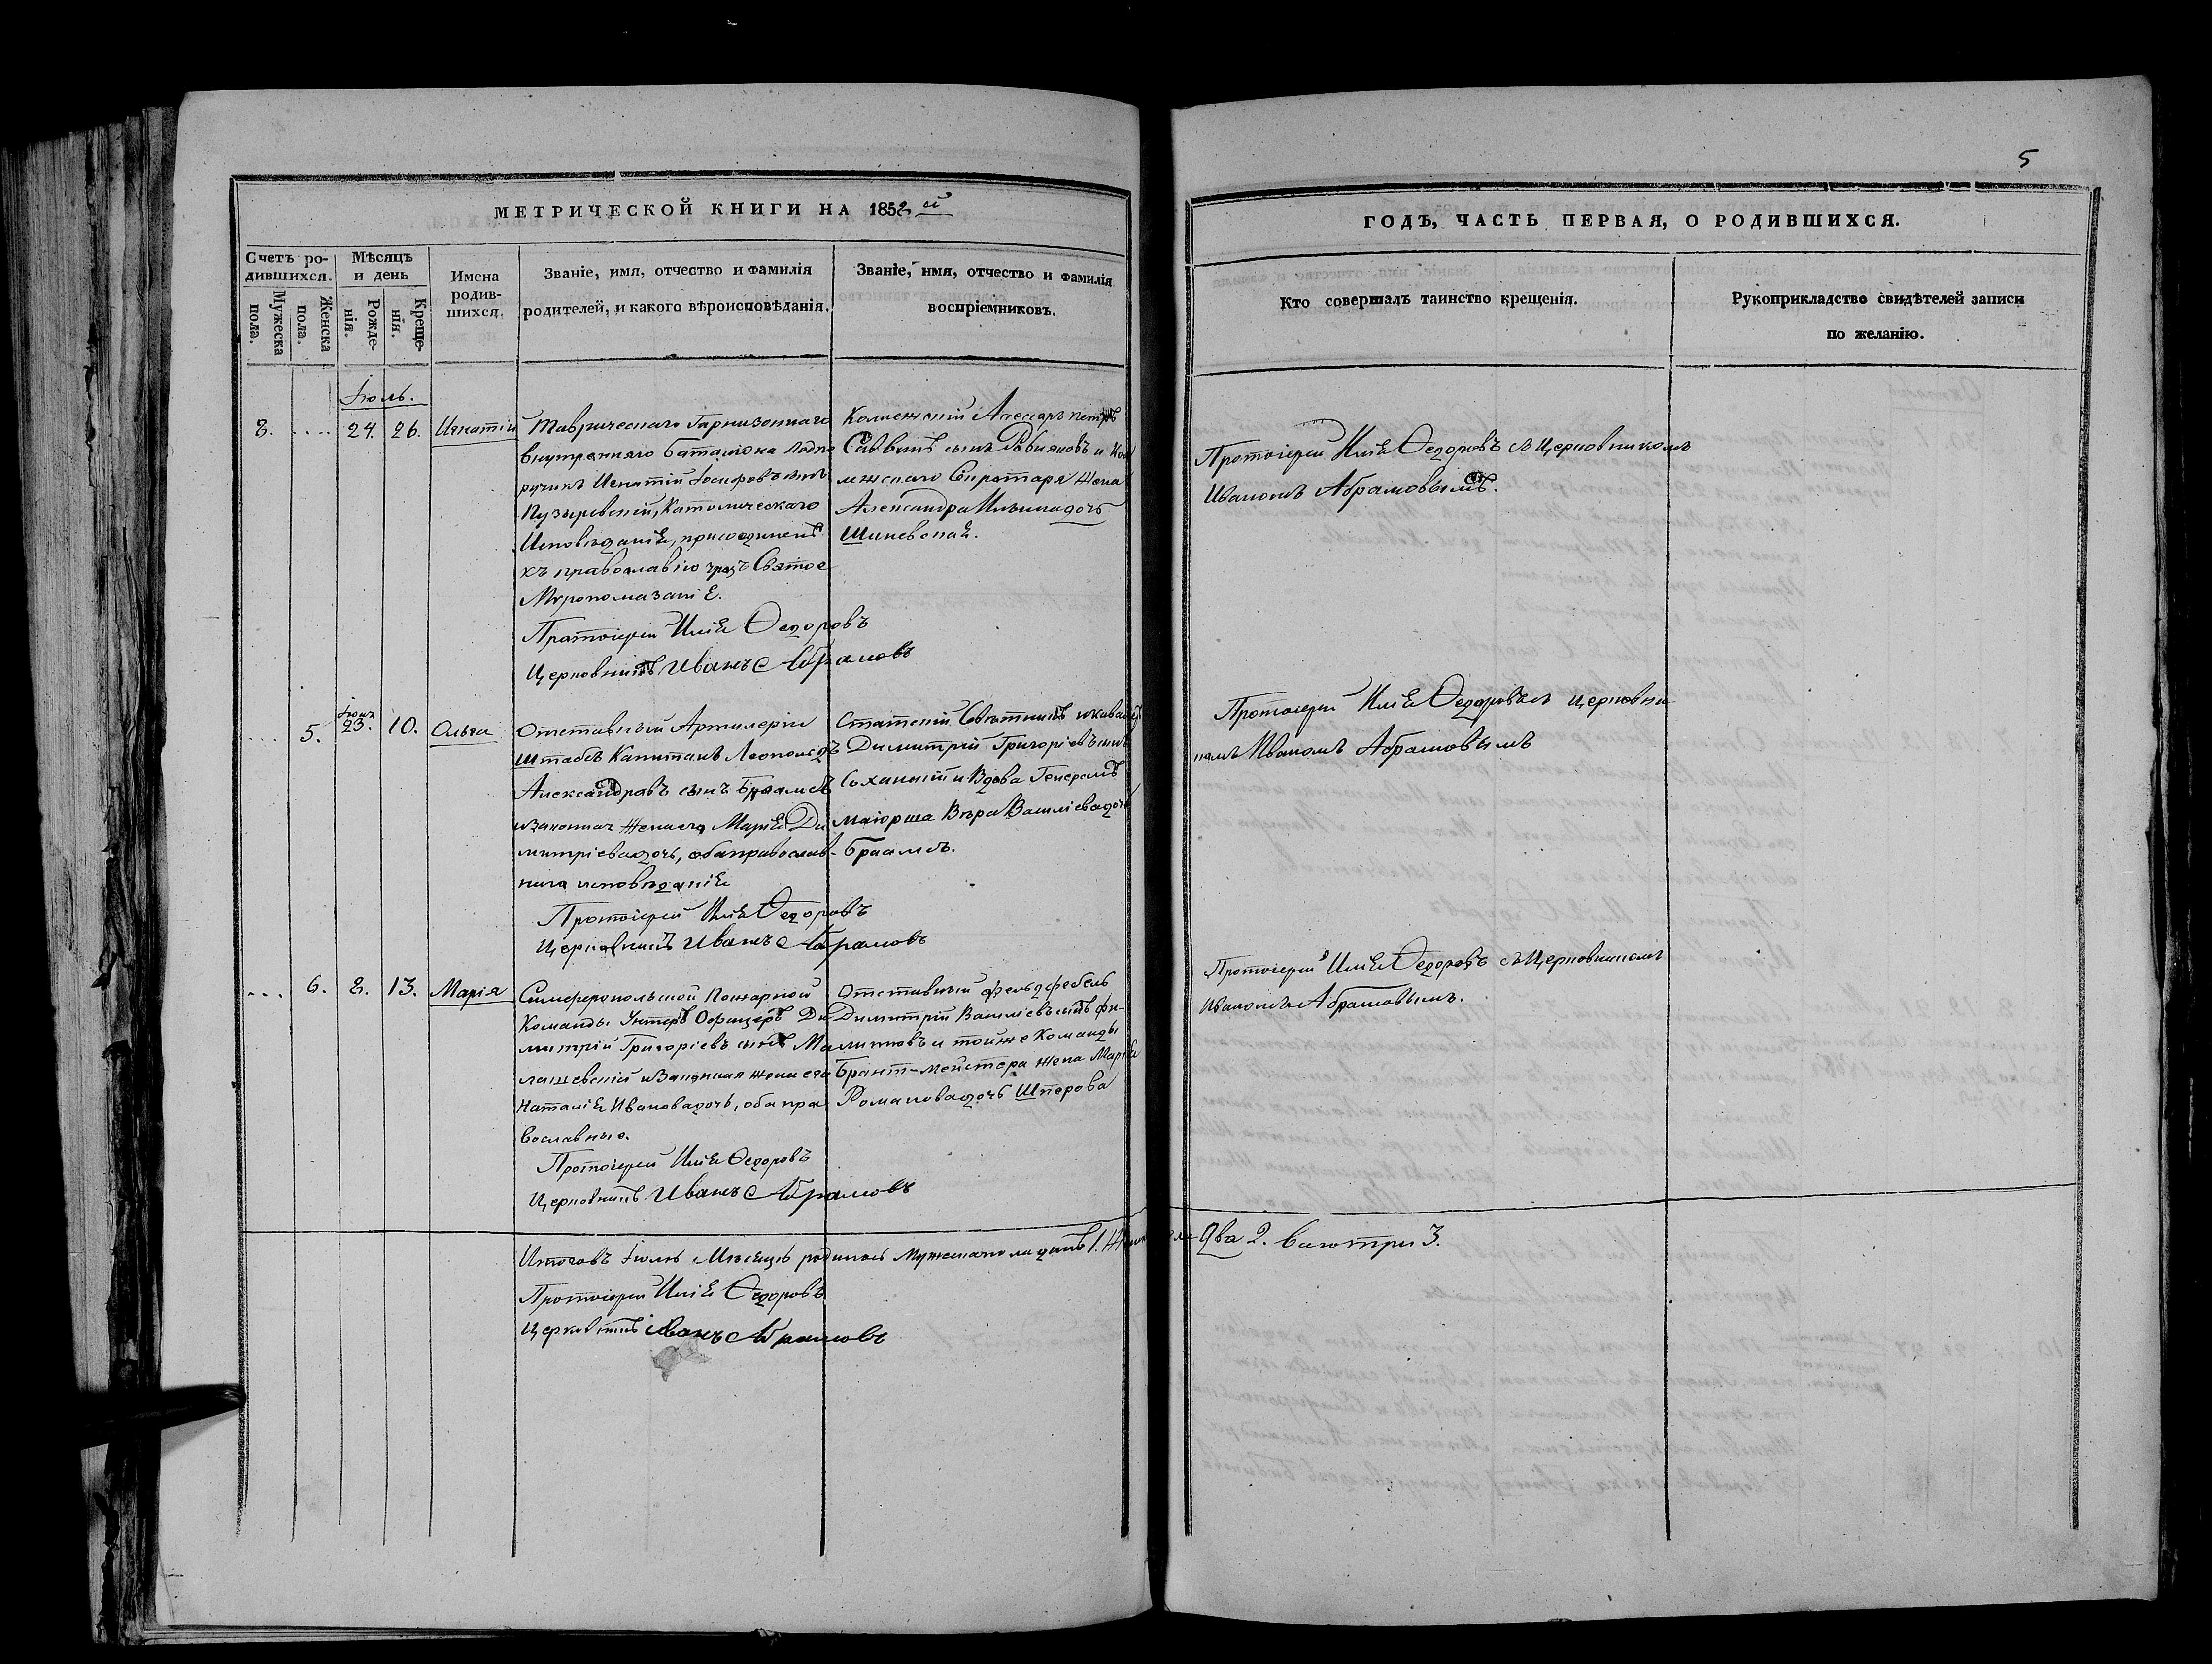 5
МЕТРИЧЕСКОЙ КНИГИ НА 1852 й
ГОДЪ, ЧАСТЬ ПЕРВАЯ, О РОДИВШИХСЯ.
Счетъ ро-
дившихся.
Мужеска
пола.
Женска
пола.
Мѣсяцъ
и день
Рожде-
нія.
Креще-
нія.
Имена
родив-
шихся.
Званіе, имя, отчество и фамилія
родителей, и какого вѣроисповѣданія.
Званіе, имя, отчество и фамилія
воспріемниковъ.
Кто совершалъ таинство крещенія.
Рукоприкладство свидѣтелей записи
по желанію.
Іюль.
8. 24. 26. Игнатій
Таврическаго Гарнизоннаго
внутренняго баталіона Подпо
ручикъ Игнатій Іосифовъ сынъ
Пузыревскій, Католическаго
Исповѣданія, присоединенъ
къ православію чрезъ Святое
Мѵропомазаніе.
Протоіерей Илія Ѳедоровъ
Церковникъ Иванъ Абрамовъ
Колежскій Асесаръ Петръ
Саввинъ сынъ и Кол
лежскаго Сикротаря жена
Александра дочь
Протоіерей Илія Ѳедоровъ съ Церковникомъ
Иваномъ Абрамовымъ.
5. Іюня 23. 10. Ольга
Отставный Артилеріи
Штабсъ Капитанъ Леопольдъ
Александровъ сынъ Браамсъ
и законная жена его Марія Ди
митріева дочь, оба православ-
наго исповѣданія
Протоіерей Илія Ѳедоровъ
Церковникъ Иванъ Абрамовъ
Статскій Совѣтникъ и кавалеръ
Димитрій Григоріевъ сынъ
Соханскій и Вдова Генералъ
маіорша Вѣра Василіева дочь
Браамсъ.
Протоіерей Илія Ѳедоровъ съ Церковни
комъ Иваномъ Абрамовымъ
6. 2. 13. Марія
Симферопольской Пожарной
Команды Унтеръ Офицеръ Ди
митрій Григоріевъ сынъ Ма
лашевскій и Законная жена его
Наталія Иванова дочь, оба пра
вославные.
Протоіерей Илія Ѳедоровъ
Церковникъ Иванъ Абрамовъ
Отставный фельдфебель
Димитрій Василіевъ сынъ Фи-
липовъ и тойже Команды
Брант-мейстера жена Марія
Романова дочь Шперова
Протоіерей Илія Ѳедоровъ съ Церковникомъ
Иваномъ Абрамовымъ.
Итого въ Іюлѣ Мѣсяцѣ родилось Мужеска пола одинъ 1. Женска два 2. всего три 3.
Протоіерей Илія Ѳедоровъ
Церковникъ Иванъ Абрамовъ